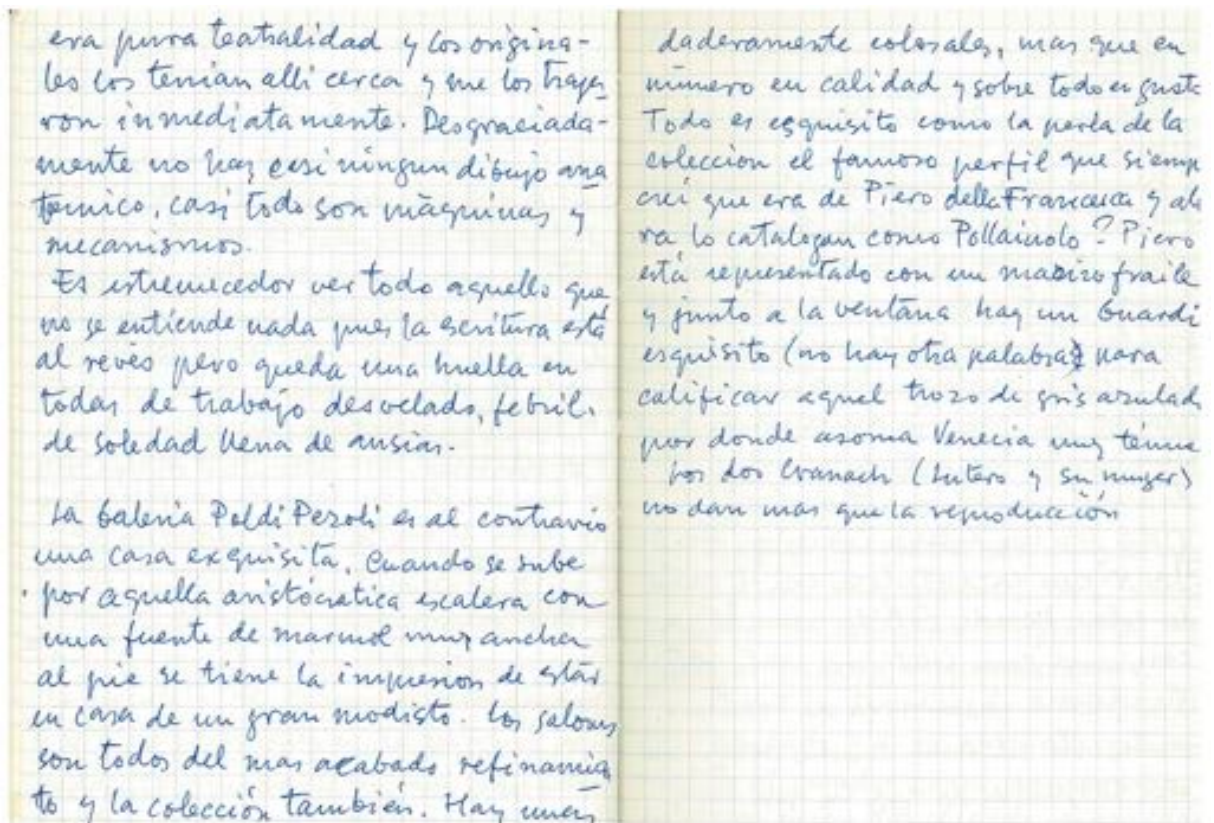 era pura teatralidad y los origina-
les los tenian alli cerca y me los traje
ron inmediatamente. Desgraciada-
mente no hay casi ningun dibujo ana
tomico, casi todo son máquinas y
mecanismos.
Es estremecedor ver todo aquello que
no se entiende nada pues la escritura está
al revés pero queda una huella en
todas de trabajo desvelado, febril.
de soledad llena de ansias.
La Galeria Poldi Pezoli es al contrario
una casa exquisita. Cuando se sube
por aquella aristócratica escalera con
una fuente de marmol muy ancha
al pie se tiene la impresion de estar
en casa de un gran modisto. Los salones
son todos del mas acabado refinamien
to y la colección también. Hay unas
daderamente colosales, mas que en
número en calidad y sobre todo en gusto
Todo es esquisito como la perla de la
coleccion el famoso perfil que siemp
creí que era de Piero della Francesca y aho
ra lo catalogan como Pollaiuolo? Piero
está representado con un macizo fraile
y junto a la ventana hay un Guardi
esquisito (no hay otra palabra) para
calificar aquel trozo de gris azulad
por donde asoma Venecia muy ténue
Los dos Cranach (Lutero y su muger)
no dan mas que la reproducción